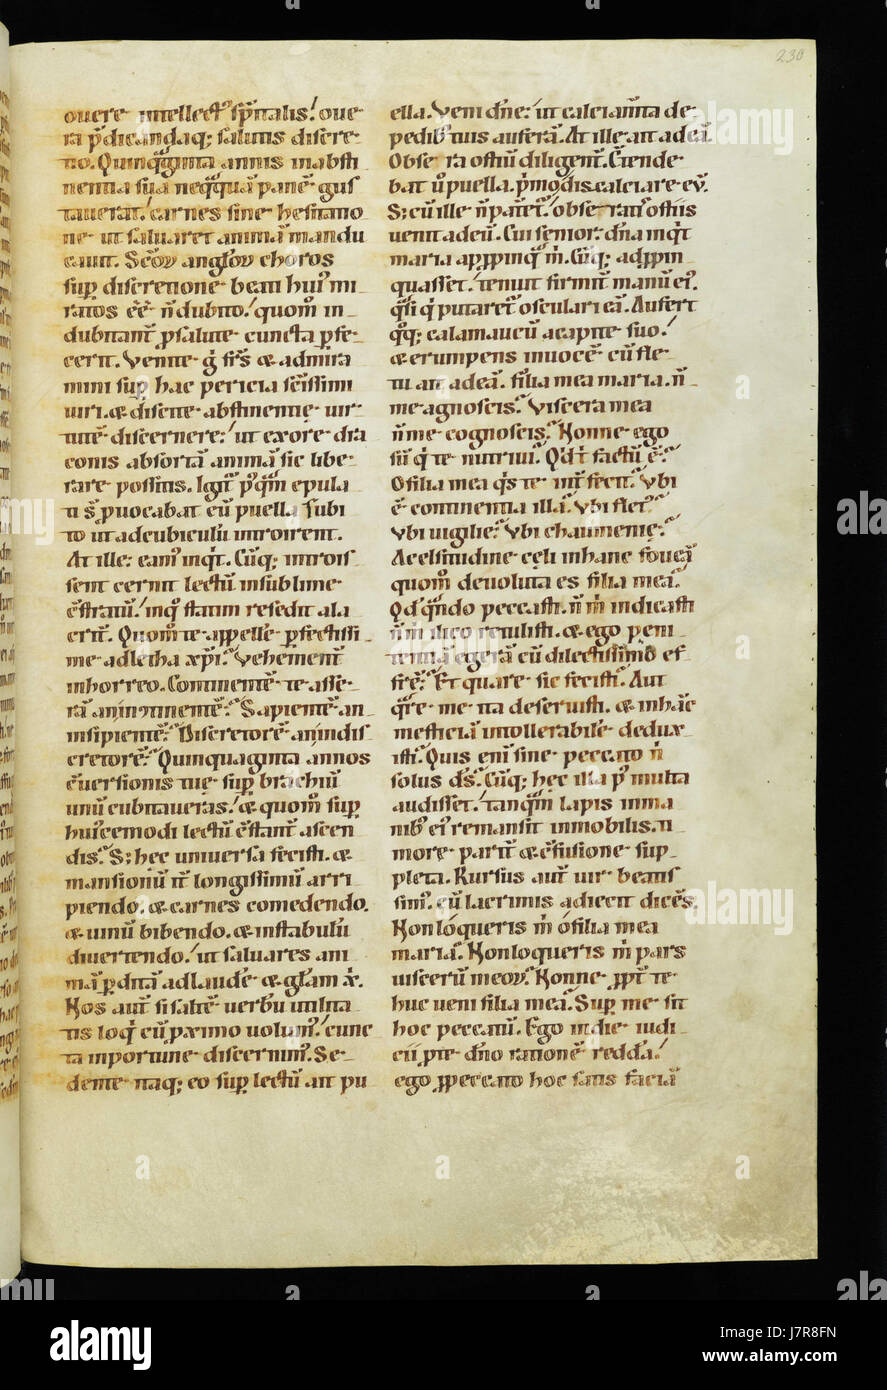 230
ouere intellectꝰ sp̄italis! oue
ra p̄dicandaq; salutis discre
tio. Quinq̄ginta annis in absti
nentia sua neq̄quā panē gus
tauerat! carnes sine hesitatio
ne ut saluaret animā mandu
cauit. Sc̄oꝝ angl̓oꝝ choros
sup̱ discretione beati huiꝰ mi
ratos eē n̄ dubito! quom̄ in
dubitant̓ p̱salute cuncta p̱fe
cerit. Venite ḡ fr̄s & admira
mini sup̱ hac pericia sc̄issimi
uiri. & discite abstinentie uir
tutē discernere! ut ex ore dra
conis absortā animā sic libe
rare possitis. Igit̓ p̓q̄m epula
ti s̄ p̱uocabat eū puella subi
to ut ad cubiculū introirent.
At ille: eamꝰ inq̓t. Cūq; introis
sent cernit lectū in sublime
exstratū! inq̓ statim resedit ala
crit̓. Quom̄ te appelle p̱fectissi
me adletha xp̓i? Vehement̓
inhorreo. Continentē te asse
rā an incontinentē? Sapientē an
insipientē? Discretorē an indis
cretorē? Quinquaginta annos
c̄uersionis tue sup̱ brachiū
unū cubitaueras! & quom̄ sup̱
huiꝰcemodi lectū exstant̓ ascen
dis? S; hec uniuersa fecisti. &
mansionū it̓ longissimū arri
piendo. & carnes comedendo.
& uinū bibendo. & in stabulū
diuertendo! ut saluares ani
mā p̱ditā ad laudē & gl̓am xp̓i.
Nos aut̄ si saltē uerbū utilita
tis loq̓ cū p̱ximo uolumꝰ! cunc
ta inportune discernimꝰ. Se
dente itaq; eo sup̱ lectū ait pu
ella. Veni dn̄e! ut calciam̄ta de
pedibꝰ tuis auferā. At ille ait ad eā!
Obsera ostiū diligent̓. Cōnde
bat ū puella. p̓mo discalciare eū.
S; cū ille n̄ pateret̓. obseratis ostiis
uenit ad eū. Cui senior: dn̄a inq̓t
maria appropinq̄ m̓. Cūq; adp̱pin
quasset! tenuit firmit̓ manū eiꝰ.
q̄si q̓ putaret̓ osculari eā. Aufert
q̄q; calamaucū a capite suo!
& erumpens in uocē cū fle
tu ait ad eā. filia mea maria. n̄
me agnoscis? Viscera mea
n̄ me cognoscis? Nonne ego
sū q̓ te nutriui? Qd̓ t̓ factū ē?
O filia mea q̓s te int̓fecit? Vbi
ē continentia illa? Vbi fletꝰ?
Vbi uigilie? Vbi chaumenie?
A celsitudine celi in hanc foueā
quom̄ deuoluta es filia mea?
Qd̓ q̄ndo peccasti. n̄ m̓ indicasti
n̄ m̓ ilico retulisti. & ego peni
tentiā egerā cū dilectissimo ef
frē? Et quare sic fecisti? Aut
q̄re me ita deseruisti. & in hāc
mesticiā intollerabilē dedux
isti? Quis eni̓ sine peccato n̄
solus d̄s? Cūq; hec illa p̓ multa
audisset! tanq̄m lapis in ma
nibꝰ eiꝰ remansit inmobilis. ti
more parit̓ & c̄fusione sup
pleta. Rursus aut̄ uir beatis
simꝰ. cū lacrimis adiecit dicēs.
Non loqueris m̓ o filia mea
maria? Non loqueris m̓ pars
uiscerū meoꝝ? Nonne p̱pt̓ te
huc ueni filia mea? Sup̱ me sit
hoc peccatū. Ego in die iudi
cii p̱te dn̄o rationē reddā!
ego p̱peccato hoc satis faciā